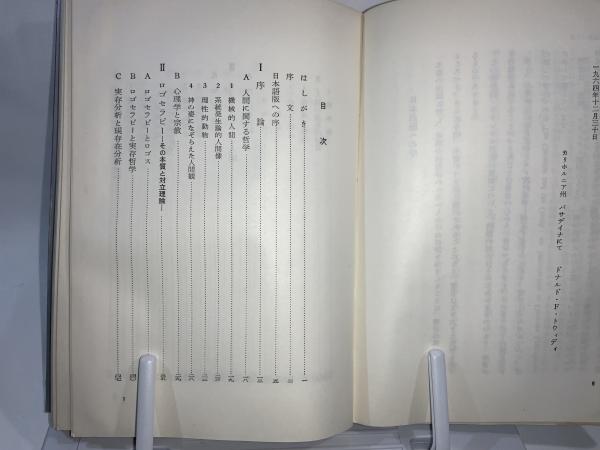 一九六四年十二月三十日
カリホルニア州 パサデイナにて
ドナルド・F・トウィディ
目次
はしがき
序文
日本語版への序
Ⅰ 序論
A 人間に関する哲学
1 機械的人間
2 系統発生論的人間像
3 理性的動物
4 神の姿になぞらえた人間観
B 心理学と宗教
Ⅱ ロゴセラピー―その本質と対立理論―
A ロゴセラピーとロゴス
B ロゴセラピーと実存哲学
C 実存分析と現存在分析